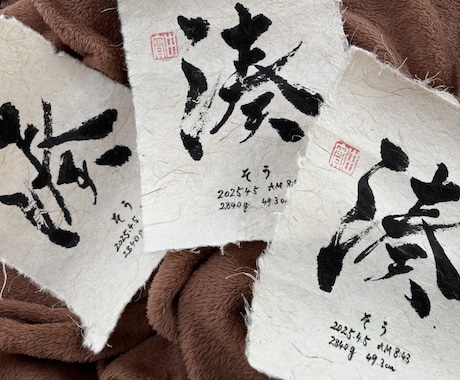 湊
そう
2025.4.5
2840g
湊
そう
2025.4.5 AM 8:4
2840g 49.3cm
湊
そう
2025.4.5 AM 8:43
2840g 49.3cm